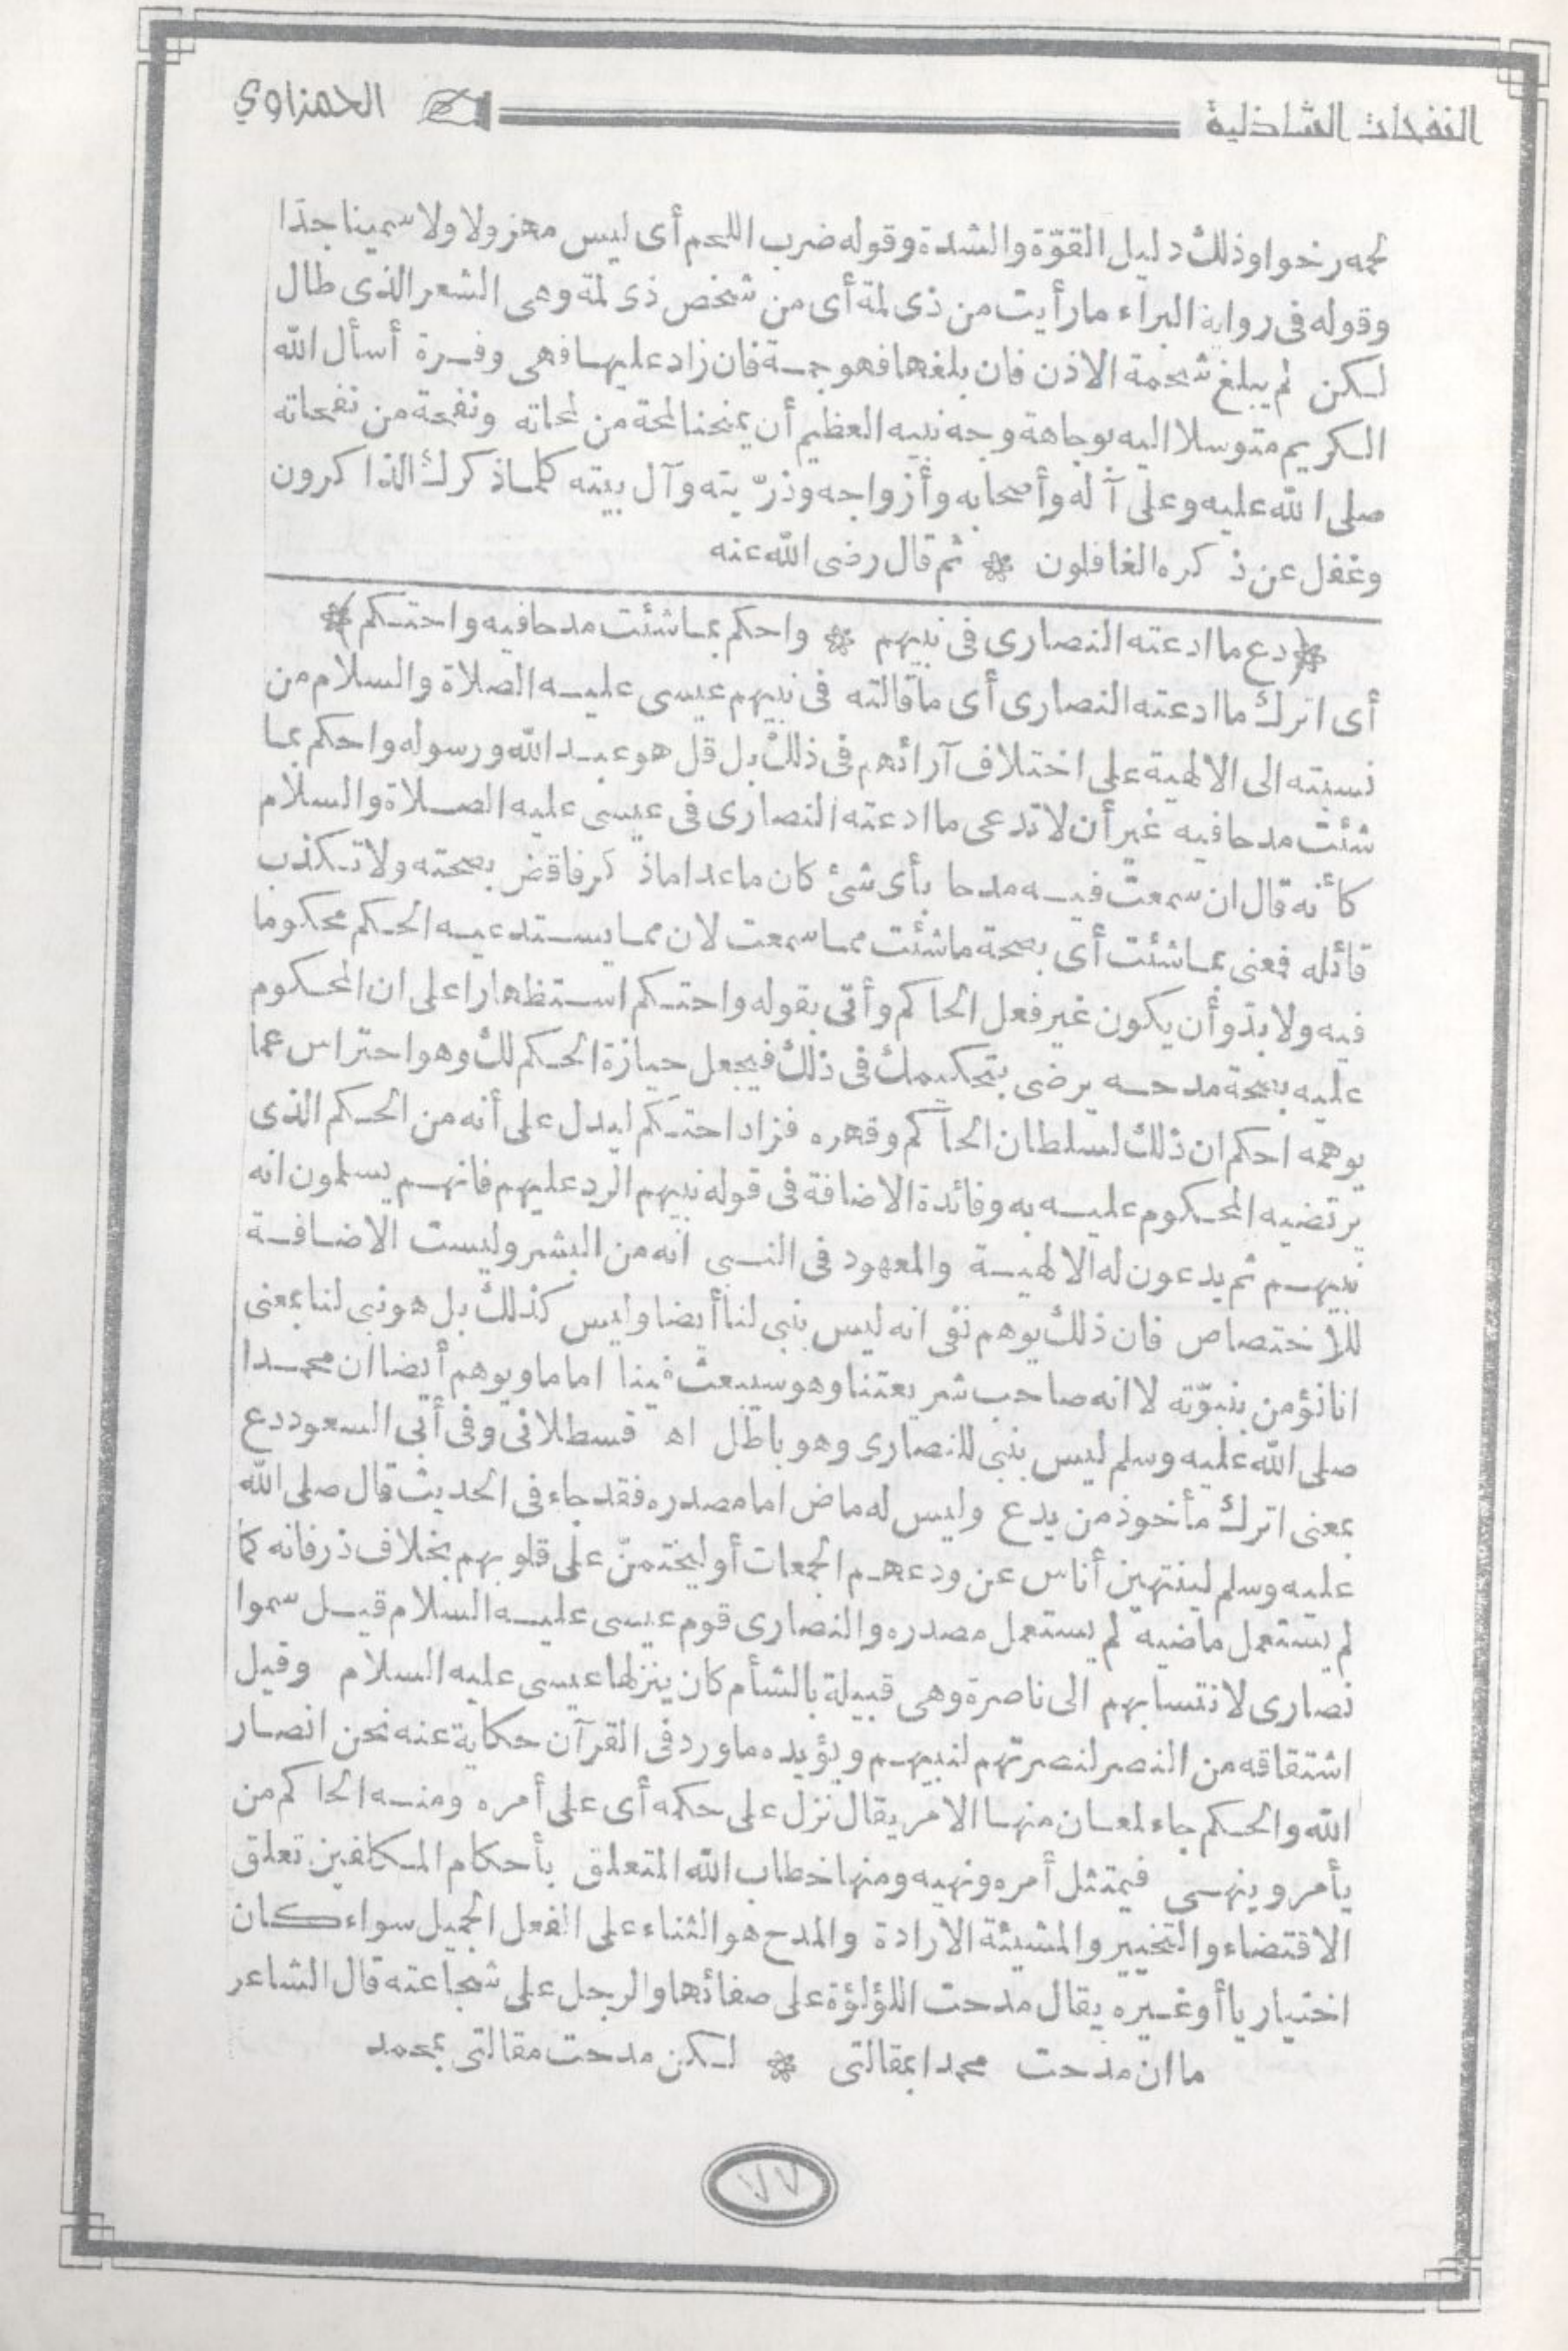 النفحات الشاذلية الحمزاوي
لحمه رخوا وذلك دليل القوّة والشدة وقوله ضرب اللحم أى ليس مهزولا ولا سمينا جدّا
وقوله فى رواية البراء ما رأيت من ذى لمة أى من شخص ذى لمة وهى الشعر الذى طال
لكن لم يبلغ شحمة الاذن فان بلغها فهو جمة فان زاد عليها فهى وفرة أسأل الله
الكريم متوسلا اليه بوجاهة وجه نبيه العظيم أن يمنحنا لمحة من لمحاته ونفحة من نفحاته
صلى الله عليه وعلى آله وأصحابه وأزواجه وذرّيته وآل بيته كلما ذكرك الذاكرون
وغفل عن ذكره الغافلون * ثم قال رضى الله عنه
*(دع ما ادعته النصارى فى نبيهم * واحكم بما شئت مدحا فيه واحتكم)*
أى اترك ما ادعته النصارى أى ما قالته فى نبيهم عيسى عليه الصلاة والسلام من
نسبته الى الالهية على اختلاف آرائهم فى ذلك بل قل هو عبد الله ورسوله واحكم بما
شئت مدحا فيه غير أن لا تدعى ما ادعته النصارى فى عيسى عليه الصلاة والسلام
كأنه قال ان سمعت فيه مدحا بأى شئ كان ما عدا ما ذكر فاقض بصحته ولا تكذب
قائله فمعنى بما شئت أى بصحة ما شئت مما سمعت لان مما يستدعيه الحكم محكوما
فيه ولا بدّ وأن يكون غير فعل الحاكم وأتى بقوله واحتكم استظهارا على ان المحكوم
عليه بصحة مدحه يرضى بتحكيمك فى ذلك فيجعل حيازة الحكم لك وهو احتراس عما
يوهمه احكم ان ذلك لسلطان الحاكم وقهره فزاد احتكم ليدل على أنه من الحكم الذى
يرتضيه المحكوم عليه به وفائدة الاضافة فى قوله نبيهم الرد عليهم فانهم يسلمون انه
نبيهم ثم يدعون له الالهية والمعهود فى النبى انه من البشر وليست الاضافة
للاختصاص فان ذلك يوهم نفى انه ليس بنبى لنا أيضا وليس كذلك بل هو نبى لنا بمعنى
انا نؤمن بنبوّته لا انه صاحب شريعتنا وهو سيبعث فينا اماما ويوهم أيضا ان محمدا
صلى الله عليه وسلم ليس بنبى للنصارى وهو باطل اه قسطلانى وفى أبى السعود دع
بمعنى اترك مأخوذ من يدع وليس له ماض اما مصدره فقد جاء فى الحديث قال صلى الله
عليه وسلم لينتهين أناس عن ودعهم الجمعات أو ليختمنّ على قلوبهم بخلاف ذر فانه كما
لم يستعمل ماضيه لم يستعمل مصدره والنصارى قوم عيسى عليه السلام قيل سموا
نصارى لانتسابهم الى ناصرة وهى قبيلة بالشأم كان ينزلها عيسى عليه السلام وقيل
اشتقاقه من النصر لنصرتهم لنبيهم ويؤيده ما ورد فى القرآن حكاية عنه نحن انصار
الله والحكم جاء لمعان منها الامر يقال نزل على حكمه أى على أمره ومنه الحاكم من
يأمر وينهى فيمتثل أمره ونهيه ومنها خطاب الله المتعلق بأحكام المكلفين تعلق
الاقتضاء والتخيير والمشيئة الارادة والمدح هو الثناء على الفعل الجميل سواء كان
اختياريا أو غيره يقال مدحت اللؤلؤة على صفائها والرجل على شجاعته قال الشاعر
ما ان مدحت محمدا بمقالتى * لكن مدحت مقالتى بمحمد
٧٧